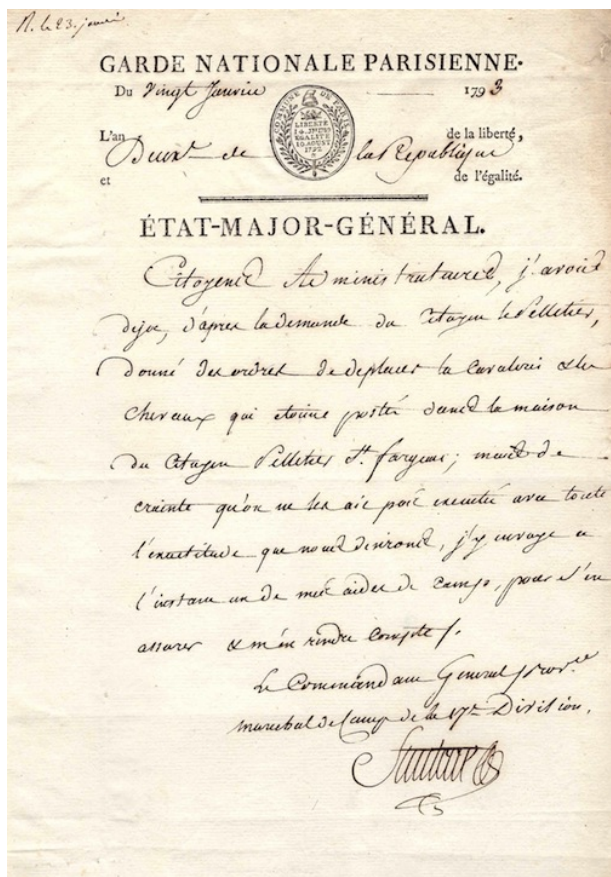 R. le 23. janvier
GARDE NATIONALE PARISIENNE.
Du Vingt Janvier 1793
COMMUNE DE PARIS
LIBERTÉ
14 JUILLET
EGALITÉ
10 AOUST
1792
L'an de la liberté,
Deux.e de la République
et de l'égalité.
ÉTAT-MAJOR-GÉNÉRAL.
Citoyens Administrateurs, j'avois
deja, d'apres la demande du Citoyen le Pelletier,
donné des ordres de deplacer la Cavalerie & les
chevaux qui étoient postés dans la maison
du Citoyen Pelletier St. fargeau; mais de
crainte qu'on ne les aie pas executés avec toute
l'exactitude que nous desirons, j'y envoye a
l'instant un de mes aides de camp, pour s'en
assurer & m'en rendre compte.
Le Commandant General prov.re
marechal de Camp de la 17.e Division.
Santerre